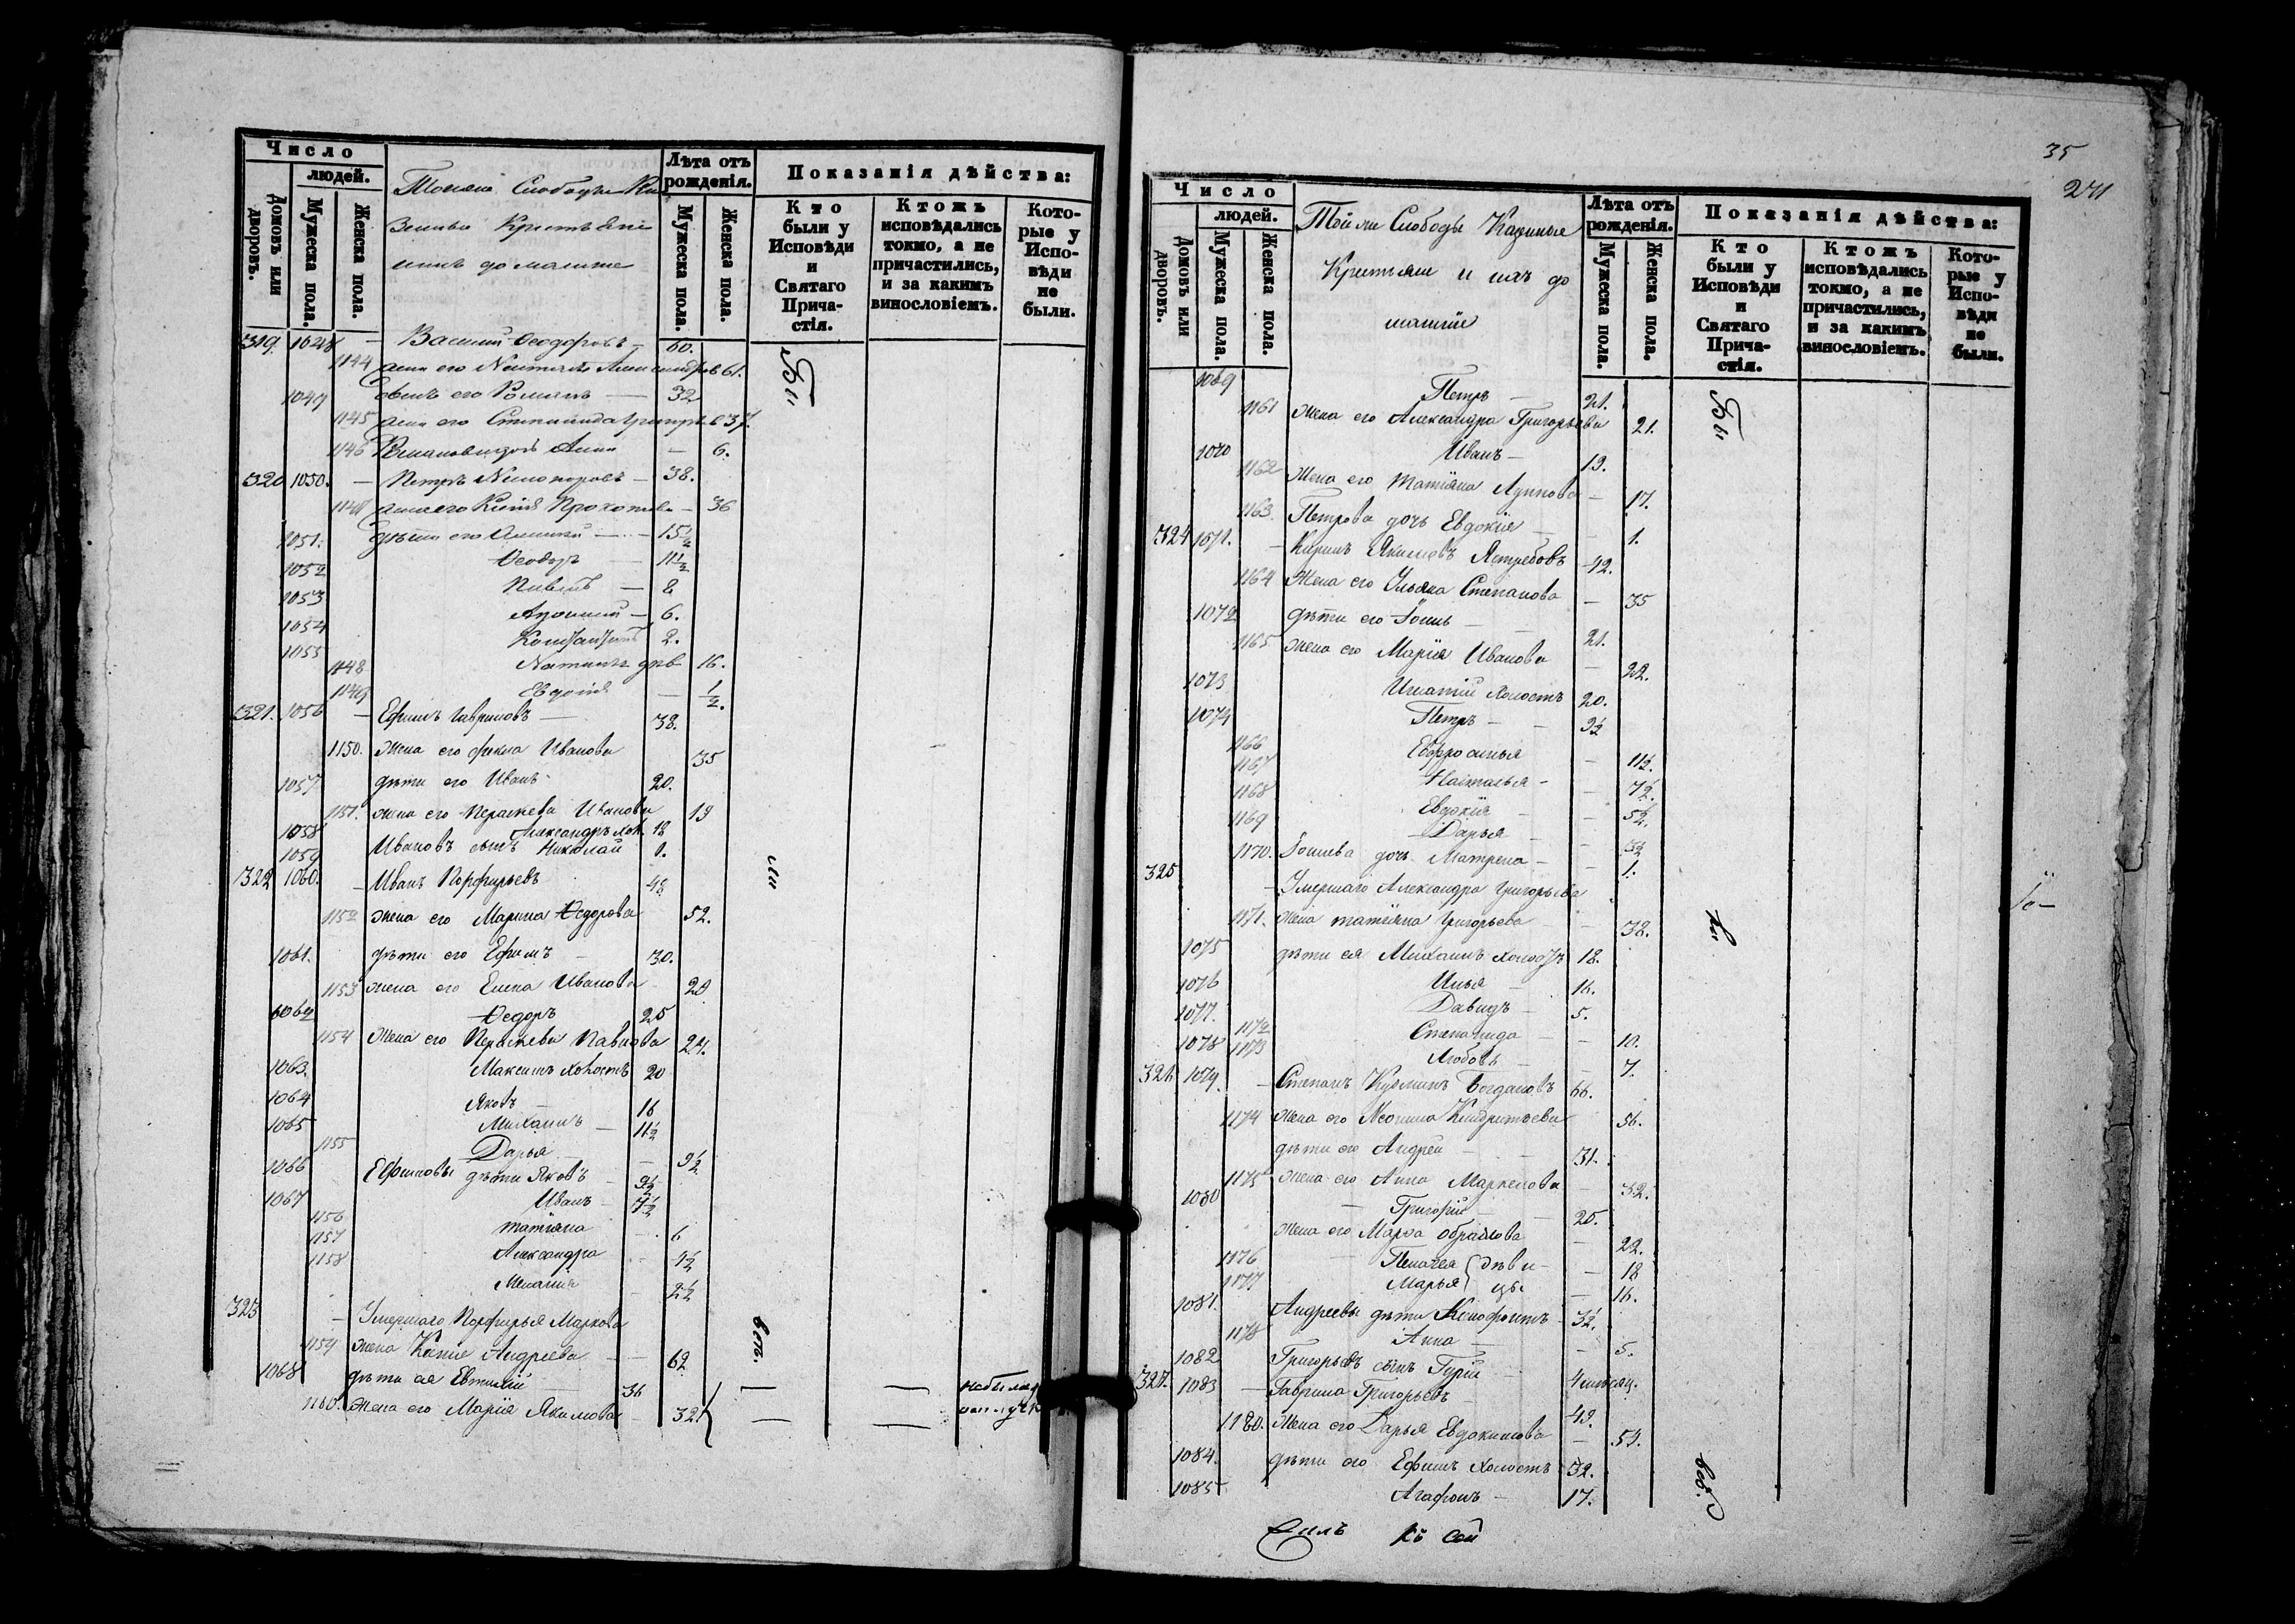 Число
людей.
Домовъ или дворовъ.
Мужеска пола.
Женска пола.
Лѣта отъ рожденія.
Мужеска пола.
Женска пола.
Показанія дѣйства:
Кто были у Исповѣди и Святаго Прича-стія.
Ктожъ исповѣдались токмо, а не причастились, и за какимъ винословіемъ.
Кото-рые у Испо-вѣди не были.
Слободы
319. 1048 — Василий Ѳеодоровъ — 60.
1144 жена его Александрова 61.
1049 сынъ его Романъ — 32
1145 жена его 37.
1146 дочь Анна — 6.
320 1050. — Петръ Никифоровъ — 38.
1147 жена его Прохорова — 36
1051. дѣти его Алексий — 15½
1052 Ѳеодоръ — 11½
1053 Павелъ — 8
1054 — 6.
1055 Константинъ 2.
1148 16.
1149 Евдокія — ½.
321. 1056 — Ефимъ Гавриловъ — 38.
1150. жена его Фекла Иванова 35
1057 дѣти его Иванъ 20.
1151. жена его Параскева Иванова 19
1058 Александръ хол. 18
1059 Ивановъ сынъ Николай 1.
322 1060. — Иванъ Порфирьевъ 48
1152 жена его Марина Ѳедорова 52.
1061. дѣти его Ефимъ — 30.
1153 жена его Елена Иванова 29
1062 Ѳедоръ 25
1154 жена его Параскева Павлова 24.
1063. Максимъ холостъ 20
1064 Яковъ — 16
1065 Михаилъ — 11½
1155 Дарья — 9½
1066 Ефимовы дѣти Яковъ — 9½
1067 Иванъ — 7½
1156 Татіяна — 6
1157 Александра — 4½
1158 Меланія — 2½
323 — Умершаго Порфирья Маркова
1159 жена Ксенія Андреева — 62
1068 дѣти ея Евтихій — 36
1160. жена его Марія Якимова — 32
Бы
ли
всѣ.
35
271
Число
людей.
Домовъ или дворовъ.
Мужеска пола.
Женска пола.
Тойже Слободы Казенные
Крестьяне и ихъ до
машніе
Лѣта отъ рожденія.
Мужеска пола.
Женска пола.
Показанія дѣйства:
Кто были у Исповѣди и Святаго Прича-стія.
Ктожъ исповѣдались токмо, а не причастились, и за какимъ винословіемъ.
Кото-рые у Испо-вѣди не были.
1069 Петръ — 21.
1161 жена его Александра Григорьева 21.
1070 Иванъ — 19.
1162 жена его Татіяна — 17.
1163. Петрова дочь Евдокія — 1.
324 1071. — Кирилъ Якимовъ Ястребовъ 42.
1164 жена его Ульяна Степанова — 35
1072 дѣти его — 21.
1165 жена его Марія Иванова — 22.
1073 Игнатій холостъ 20.
1074 Петръ — 9½
1166 Евфросинья — 11½.
1167 Наталья — 7½.
1168 Евдокія — 5½.
1169 Дарья — 3½
1170. дочь Матрена — 1.
325 — Умершаго Александра Григорьева
1171. жена Татіяна Григорьева — 38.
1075 дѣти ея Михаилъ холостъ 18.
1076 Илья — 16.
1077. Давидъ — 5.
1172 Степанида — 10.
1078 1173 Любовь — 7.
326 1079. — Степанъ Кузминъ Богдановъ 66.
1174 жена его 56.
дѣти его Андрей — 31.
1175 жена его Анна Маркелова — 32.
1080 — Григорій — 25.
жена его Марѳа — 22.
1176 Пелагея дѣви — 18
1177 Марья цы — 16.
1081. Андреевы дѣти Ксенофонтъ 3½.
1178 Анна — 5.
1082 Григорьевъ сынъ Гурій — 4 мѣсяц.
327. 1083 — Гаврила Григорьевъ — 49.
1180. жена его Дарья Евдокимова — 59.
1084. дѣти его Ефимъ холостъ 32.
1085 Агафонъ — 17.
Бы
ли
всѣ.
къ сей